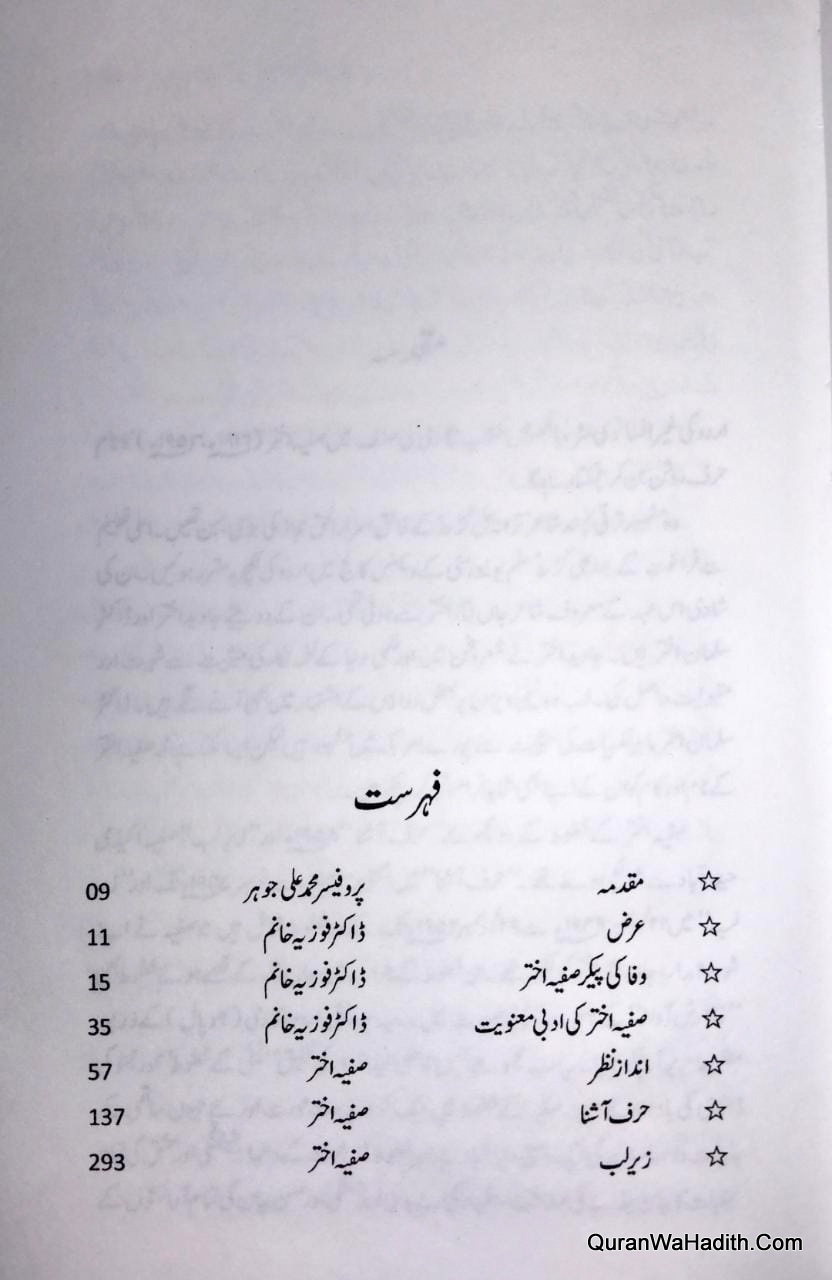 فہرست
☆ مقدمہ پروفیسر محمد علی جوہر 09
☆ عرض ڈاکٹر فوزیہ خانم 11
☆ وفا کی پیکر صفیہ اختر ڈاکٹر فوزیہ خانم 15
☆ صفیہ اختر کی ادبی معنویت ڈاکٹر فوزیہ خانم 35
☆ انداز نظر صفیہ اختر 57
☆ حرف آشنا صفیہ اختر 137
☆ زیر لب صفیہ اختر 293
QuranWaHadith.Com